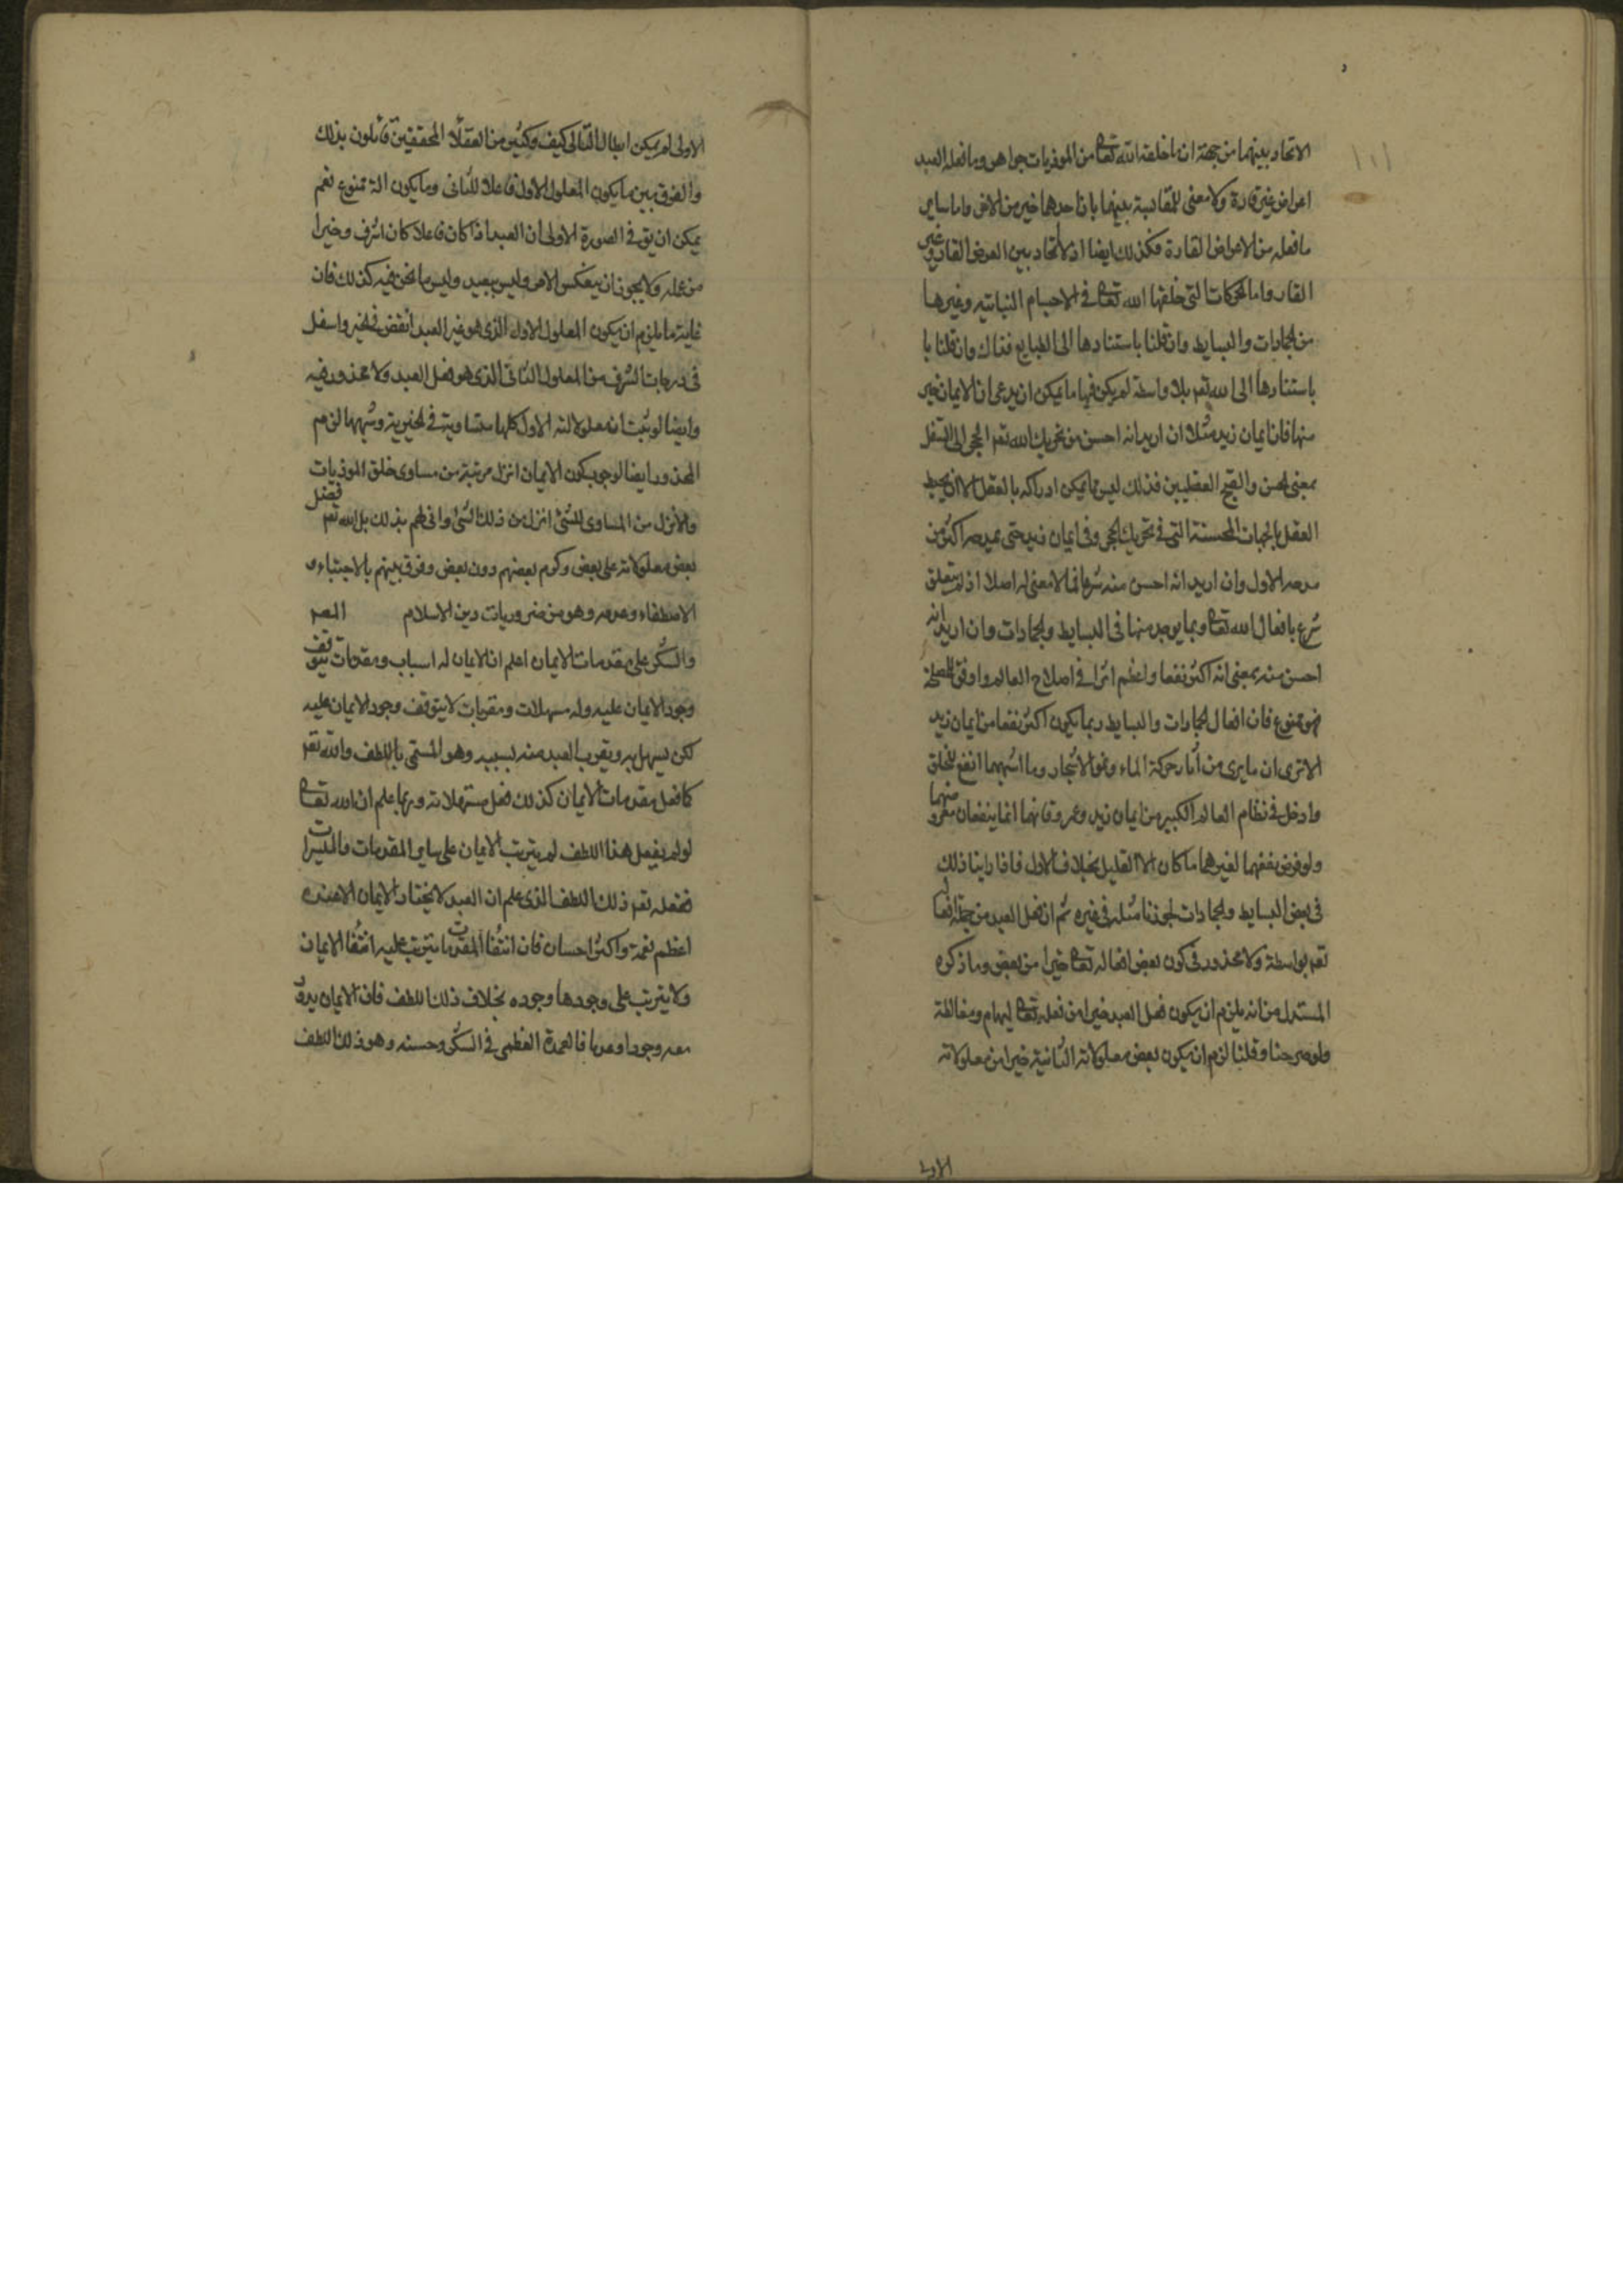 الاتحاد بينهما من جهة ان ما خلقه الله تعالى من الموذيات جواهر وما فعله العبد
اعراض غير قارة ولا معنى للمقايسة بينهما بان احدهما خير من الاخر واما ساير
ما فعله من الاعراض القارة فكذلك ايضا اذ لا اتحاد بين العرض القار وغير
القار واما الحركات التى خلقها الله تعالى فى الاجسام النباتيه وغيرها
من الجمادات والبسايط وان قلنا باستنادها الى الطبايع فذاك وان قلنا با
باستنادها الى الله تعم بلا واسطة لم يكن فيها ما يمكن ان يدعى ان الايمان خير
منها فان ايمان زيد مثلا ان اريد انه احسن من تحريك الله تعم الحجر الى السفل
بمعنى الحسن والقبح العقليين فذلك ليس مما يمكن ادراكه بالعقل الا ان يحيط
العقل بالجهات المحسنة التى فى تحريك الحجر وفى ايمان زيد حتى اكثر من
الاول وان اريد انه احسن منه شرعا فما لا معنى له اصلا اذ لم يتعلق
شرع بافعال الله تعالى وبما يوجد منها فى البسايط والجمادات وان اريد انه
احسن منه بمعنى انه اكثر نفعا واعظم اثرا فى اصلاح العالم واوفق للمصلحة
فهو ممنوع فان افعال الجمادات والبسايط ربما يكون اكثر نفعا من ايمان زيد
الا ترى ان ما يرى من آثار حركة الماء ونمو الاشجار وما اشبههما انفع للخلق
وادخل فى نظام العالم الكبير من ايمان زيد وعمرو فانهما انما ينفعان
ولو فرض نفعهما لغيرهما ما كان الا القليل بخلاف الاول فاذا راينا ذلك
فى بعض البسايط والجمادات لجوزنا مثله فى غيره ثم ان فعل العبد من جملة افعاله
تعم بواسطة ولا محذور فى كون بعض افعاله تعالى خيرا من بعض وما ذكره
المستدل من انه يلزم ان يكون فعل العبد خيرا من فعله تعالى ايهام ومغالطة
ولو صرحنا وقلنا لزم ان يكون بعض معلولاته الثانية خيرا من معلولاته
الاولى
الاولى لم يمكن ابطال التالى كيف وكثير من العقلاء المحققين قائلون بذلك
والفرق بين ما يكون المعلول الاول فاعلا للثانى وما يكون الة ممنوع نعم
يمكن ان يق فى الصورة الاولى ان العبد اذا كان فاعلا كان اشرف وخيرا
من عمله ولا يجوز ان ينعكس الامر وليس ببعيد وليس ما نحن فيه كذلك فان
غاية ما يلزم ان يكون المعلول الاول الذى هو غير العبد انقص فى الخير واسفل
فى درجات الشرف من المعلول الثانى الذى هو فعل العبد ولا محذور فيه
وايضا لو ثبت ان معلولاته الاول كلها متساوية فى الخيرية وشبهها لزم
المحذور ايضا لوجوب كون الايمان انزل مرتبة من مساوى خلق الموذيات
والانزل من المساوى للشئ انزل من ذلك الشئ وانى لهم بذلك بل الله تعم فضل
بعض معلولاته على بعض وكرم بعضهم دون بعض وفرق بينهم بالاجتباء و
الاصطفاء وعدمه وهو من ضروريات دين الاسلام المصم
والشكر على مقدمات الايمان اعلم ان الايمان له اسباب ومقدمات يتوقف
وجود الايمان عليه وله مسهلات ومقربات لا يتوقف وجود الايمان عليه
لكن يسهل به ويقرب العبد منه بسببه وهو المسمى باللطف والله تعم
كما فعل مقدمات الايمان كذلك فعل مسهلاته وربما علم ان الله تعالى
لو لم يفعل هذا اللطف لم يترتب الايمان على ساير المقدمات والميسرات
ففعله تعم ذلك اللطف الذى علم ان العبد لا يختار الايمان الا عنده
اعظم نعمة واكثر احسان فان انتفاء المقدمات يترتب عليه انتفا الايمان
ولا يترتب على وجودها وجوده بخلاف ذلك اللطف فان الايمان يدور
معه وجودا وعدما فالعمدة العظمى فى الشكر وحسنه وهو ذلك اللطف